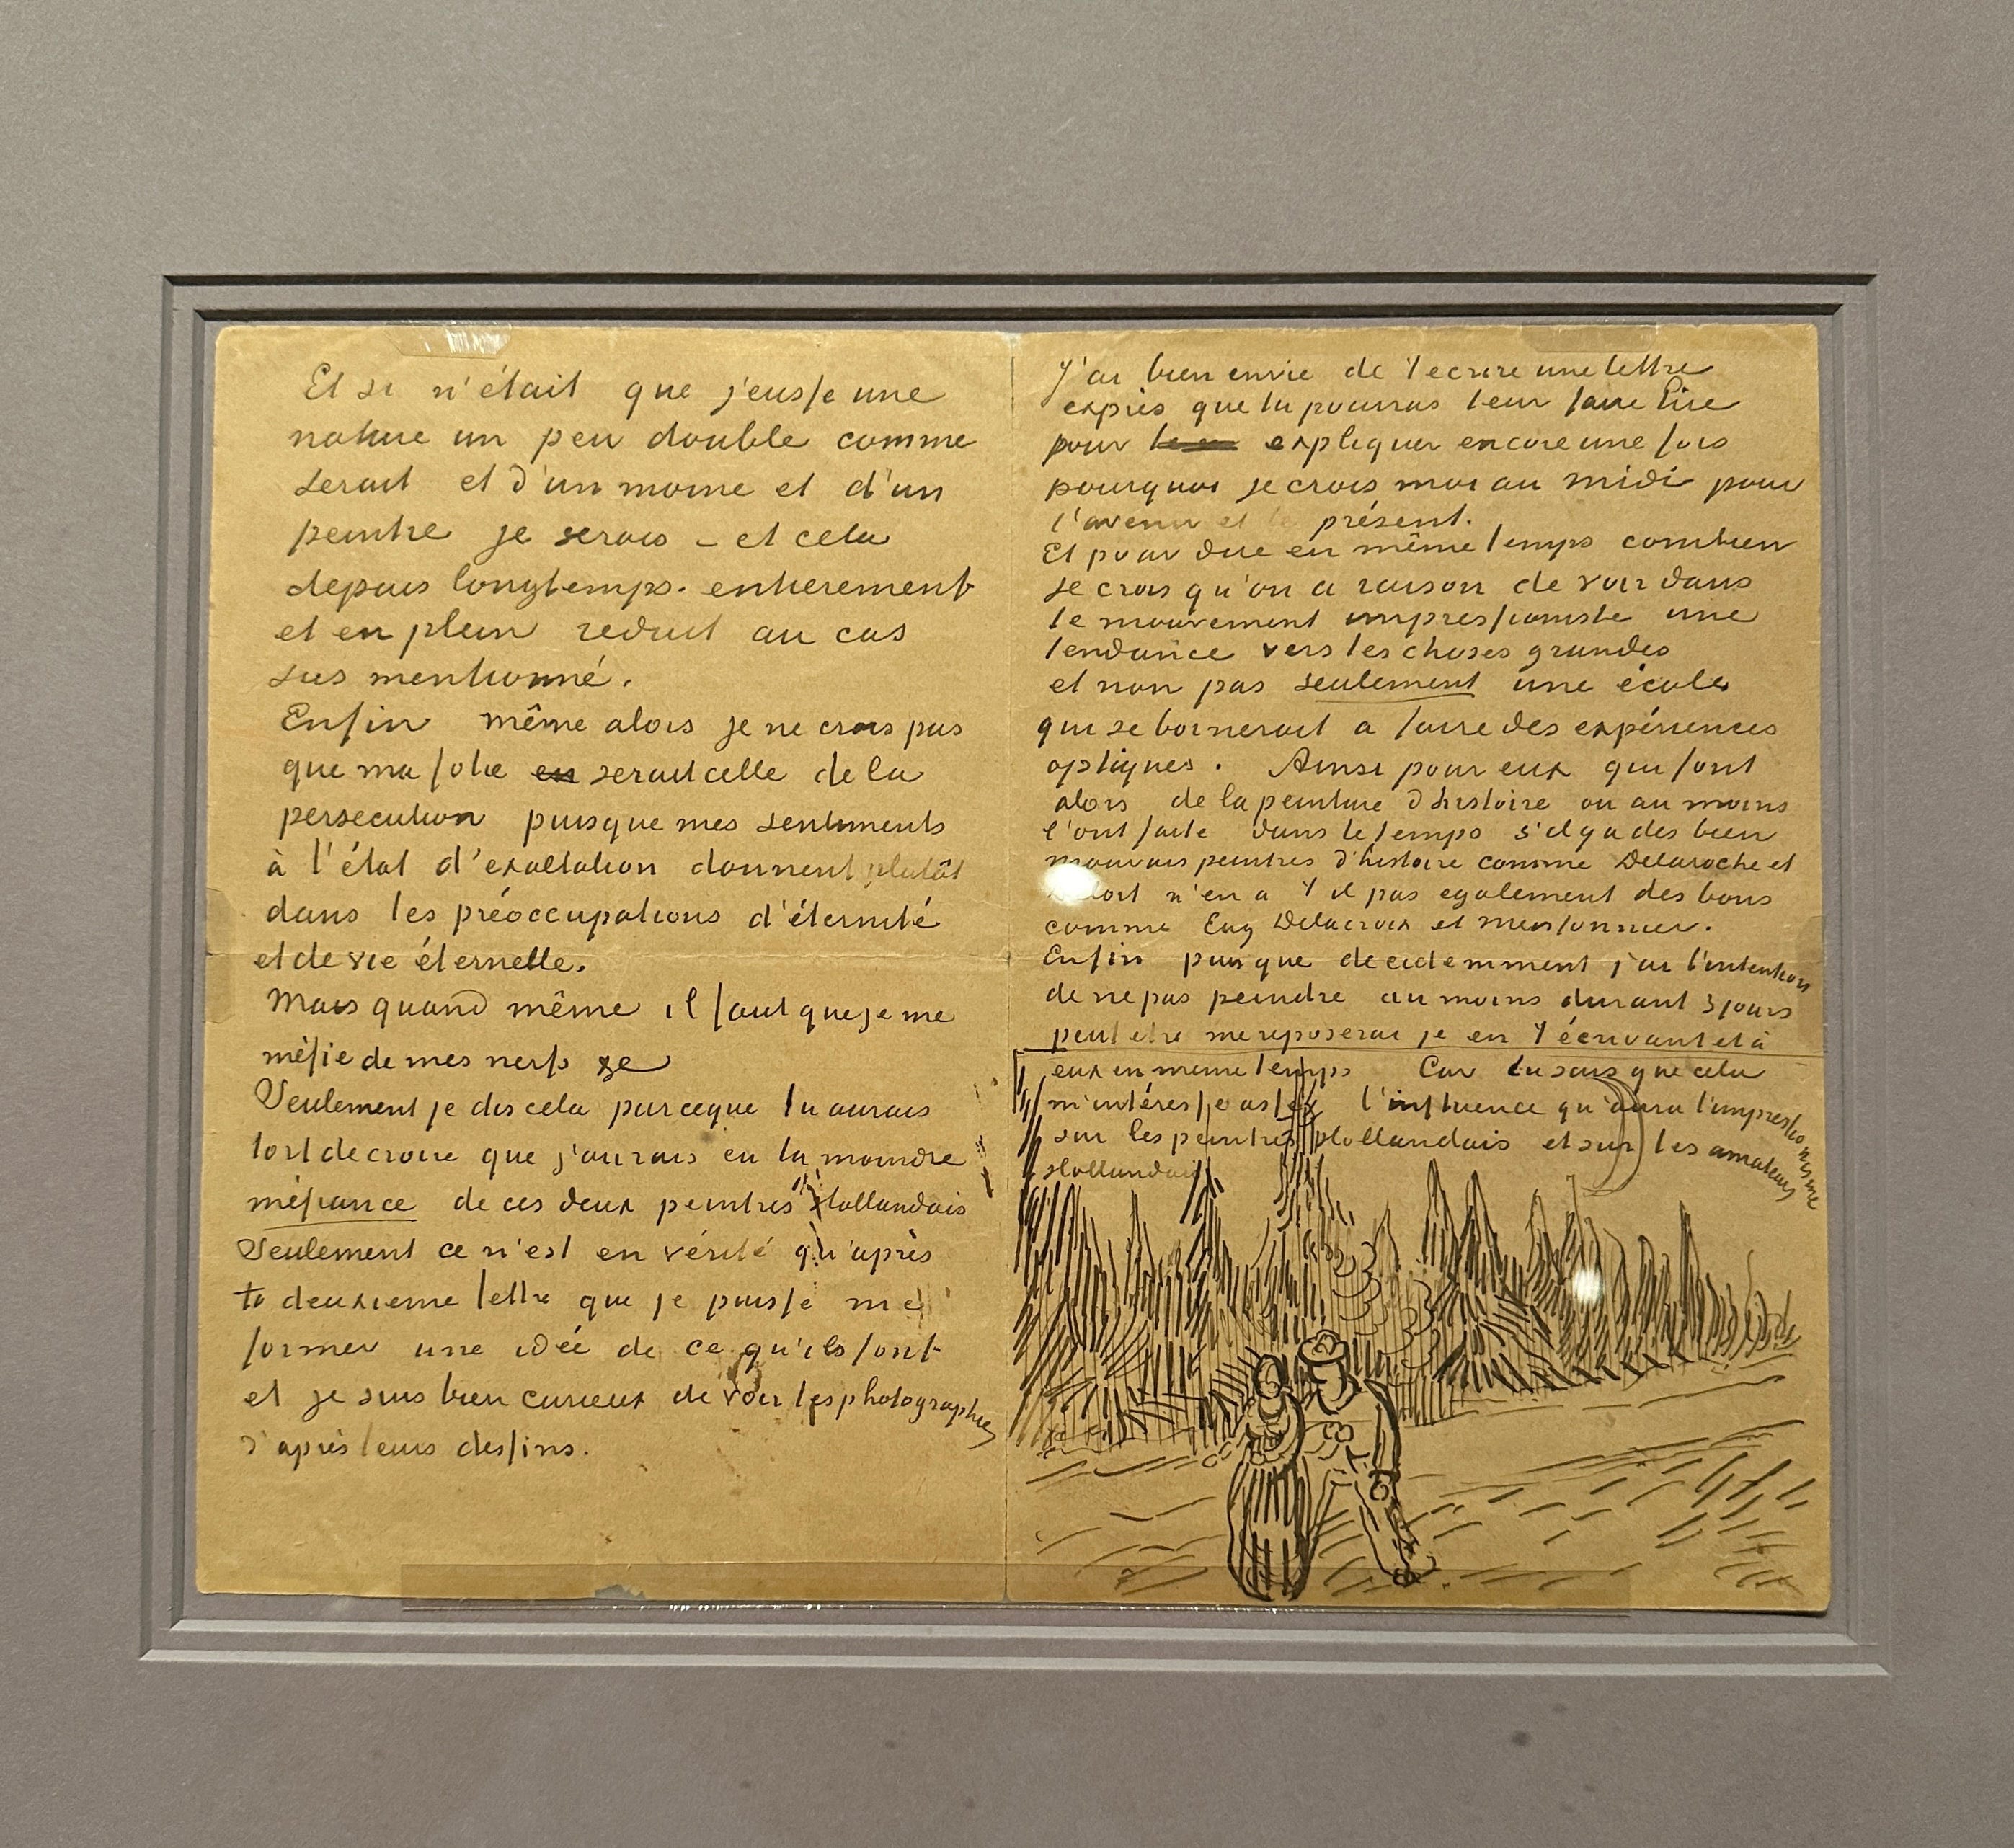 Et si n'était que j'eusse une
nature un peu double comme
serait et d'un moine et d'un
peintre je serais – et cela
depuis longtemps. entierement
et en plein reduit au cas
sus mentionné.
Enfin même alors je ne crois pas
que ma folie en serait celle de la
persecution puisque mes sentiments
à l'état d'exaltation donnent plutôt
dans les préoccupations d'éternité
et de vie éternelle.
Mais quand même il faut que je me
méfie de mes nerfs &c
Seulement je dis cela parceque tu aurais
tort de croire que j'aurais eu la moindre
méfiance de ces deux peintres Hollandais
Seulement ce n'est en vérité qu'après
ta deuxieme lettre que je puisse me
former une idée de ce qu'ils font
et je suis bien curieux de voir les photographies
d'après leurs dessins.
J'ai bien envie de t'ecrire une lettre
exprès que tu pourras leur faire lire
pour expliquer encore une fois
pourquoi je crois moi au midi pour
l'avenir et le présent.
Et pour dire en même temps combien
je crois qu'on a raison de voir dans
le mouvement impressioniste une
tendance vers les choses grandes
et non pas seulement une école
qui se bornerait a faire des expériences
optiques. Ainsi pour eux qui font
alors de la peinture d'histoire ou au moins
l'ont faite dans le temps s'il y a des bien
mauvais peintres d'histoire comme Delaroche et
n'en a t il pas egalement des bons
comme Eug Delacroix et Meissonnier.
Enfin puisque decidemment j'ai l'intention
de ne pas peindre au moins durant 3 jours
peut etre me reposerai je en t'écrivant et à
eux en meme temps Car tu sais que cela
m'intéresse assez l'influence qu'aura l'impressionisme
sur les peintres Hollandais et sur les amateurs
Hollandais